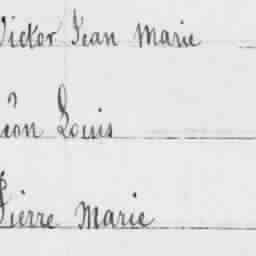 Victor Jean Marie
Léon Louis
Pierre Marie